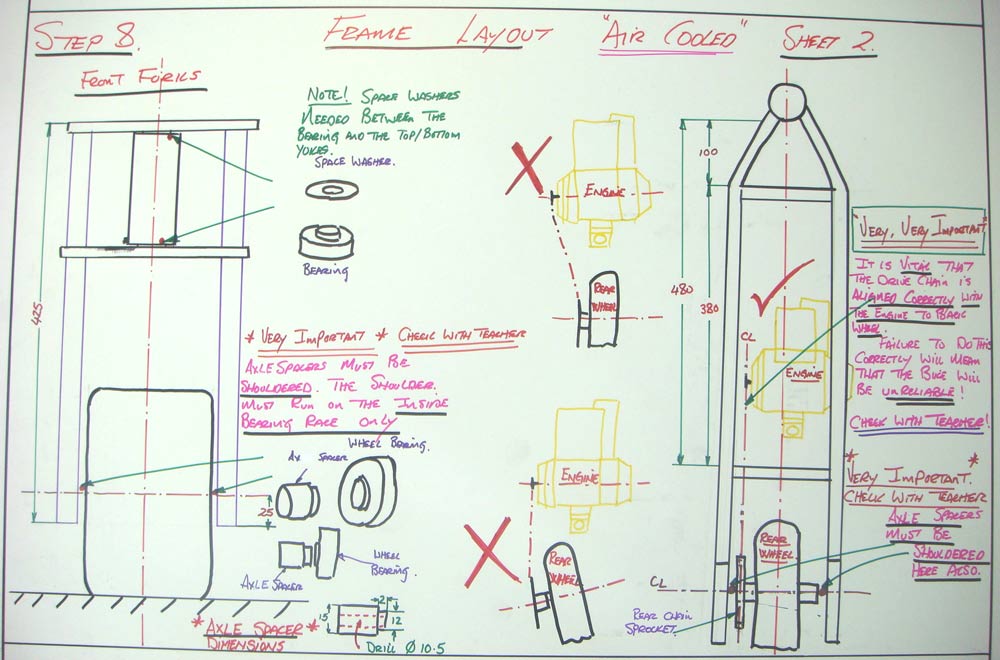 STEP 8.
FRAME LAYOUT "AIR COOLED" SHEET 2.
FRONT FORKS
NOTE! SPACE WASHERS
NEEDED BETWEEN THE
BEARING AND THE TOP/BOTTOM
YOKES.
SPACE WASHER.
BEARING
425
* VERY IMPORTANT * CHECK WITH TEACHER
AXLE SPACERS MUST BE
SHOULDERED. THE SHOULDER.
MUST RUN ON THE INSIDE
BEARING RACE ONLY
WHEEL BEARING.
AX SPACER
25
WHEEL
BEARING.
AXLE SPACER
* AXLE SPACER *
DIMENSIONS
15
2
12
DRILL Ø 10.5
ENGINE
REAR
WHEEL
ENGINE
REAR
WHEEL
100
480
380
CL
ENGINE
REAR
WHEEL
CL
REAR CHAIN
SPROCKET
"VERY, VERY IMPORTANT"
IT IS VITAL THAT
THE DRIVE CHAIN IS
ALIGNED CORRECTLY WITH
THE ENGINE TO BACK
WHEEL.
FAILURE TO DO THIS
CORRECTLY WILL MEAN
THAT THE BIKE WILL
BE UNRELIABLE!
CHECK WITH TEACHER!
* *
VERY IMPORTANT.
CHECK WITH TEACHER
AXLE SPACERS
MUST BE
SHOULDERED
HERE ALSO.